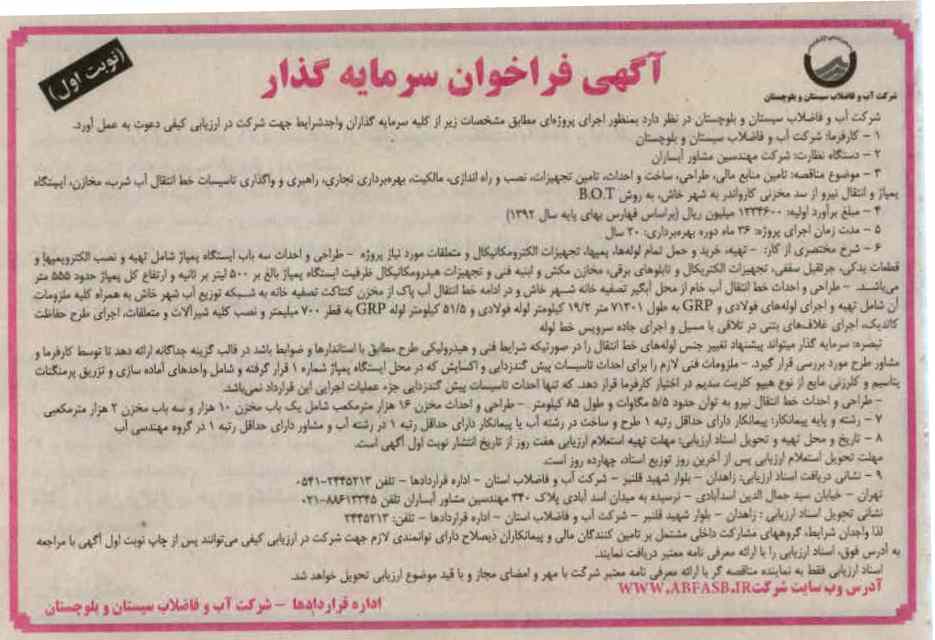 آگهی فراخوان سرمایه گذار
(نوبت اول)
شرکت آب و فاضلاب سیستان و بلوچستان
شرکت آب و فاضلاب سیستان و بلوچستان در نظر دارد بمنظور اجرای پروژه‌ای مطابق مشخصات زیر از کلیه سرمایه گذاران واجدشرایط جهت شرکت در ارزیابی کیفی دعوت به عمل آورد.
۱ – کارفرما: شرکت آب و فاضلاب سیستان و بلوچستان
۲ – دستگاه نظارت: شرکت مهندسین مشاور آبساران
۳ – موضوع مناقصه: تامین منابع مالی، طراحی، ساخت و احداث، تامین تجهیزات، نصب و راه اندازی، مالکیت، بهره‌برداری تجاری، راهبری و واگذاری تاسیسات خط انتقال آب شرب، مخازن، ایستگاه
پمپاژ و انتقال نیرو از سد مخزنی کارواندر به شهر خاش، به روش B.O.T
۴ – مبلغ برآورد اولیه: ۱۲۳۴۶۰۰ میلیون ریال (براساس فهارس بهای پایه سال ۱۳۹۲)
۵ – مدت زمان اجرای پروژه: ۳۶ ماه دوره بهره‌برداری: ۲۰ سال
۶ – شرح مختصری از کار: – تهیه، خرید و حمل تمام لوله‌ها، پمپها، تجهیزات الکترومکانیکال و متعلقات مورد نیاز پروژه – طراحی و احداث سه باب ایستگاه پمپاژ شامل تهیه و نصب الکتروپمپها و
قطعات یدکی، جرثقیل سقفی، تجهیزات الکتریکال و تابلوهای برقی، مخازن مکش و ابنیه فنی و تجهیزات هیدرومکانیکال ظرفیت ایستگاه پمپاژ بالغ بر ۵۰۰ لیتر بر ثانیه و ارتفاع کل پمپاژ حدود ۵۵۵ متر
می‌باشند. – طراحی و احداث خط انتقال آب خام از محل آبگیر تصفیه خانه شهر خاش و در ادامه خط انتقال آب پاک از مخزن کنتاکت تصفیه خانه به شبکه توزیع آب شهر خاش به همراه کلیه ملزومات
آن شامل تهیه و اجرای لوله‌های فولادی و GRP به طول ۷۱۳۰۱ متر ۱۹/۲ کیلومتر لوله فولادی و ۵۱/۵ کیلومتر لوله GRP به قطر ۷۰۰ میلیمتر و نصب کلیه شیرآلات و متعلقات، اجرای طرح حفاظت
کاتدیک، اجرای غلاف‌های بتنی در تلاقی با مسیل و اجرای جاده سرویس خط لوله
تبصره: سرمایه گذار میتواند پیشنهاد تغییر جنس لوله‌های خط انتقال را در صورتیکه شرایط فنی و هیدرولیکی طرح مطابق با استاندارها و ضوابط باشد در قالب گزینه جداگانه ارائه دهد تا توسط کارفرما و
مشاور طرح مورد بررسی قرار گیرد. – ملزومات فنی لازم را برای احداث تاسیسات پیش گندزدایی و اکسایش که در محل ایستگاه پمپاژ شماره ۱ قرار گرفته و شامل واحدهای آماده سازی و تزریق پرمنگنات
پتاسیم و کلرزنی مایع از نوع هیپو کلریت سدیم در اختیار کارفرما قرار دهد. که تنها احداث تاسیسات پیش گندزدایی جزء عملیات اجرایی این قرارداد نمی‌باشد.
– طراحی و احداث خط انتقال نیرو به توان حدود ۵/۵ مگاوات و طول ۸۵ کیلومتر. – طراحی و احداث مخزن ۱۶ هزار مترمکعب شامل یک باب مخزن ۱۰ هزار و سه باب مخزن ۲ هزار مترمکعبی
۷ – رشته و پایه پیمانکار: پیمانکار دارای حداقل رتبه ۱ طرح و ساخت در رشته آب یا پیمانکار دارای حداقل رتبه ۱ در رشته آب و مشاور دارای حداقل رتبه ۱ در گروه مهندسی آب
۸ – تاریخ و محل تهیه و تحویل اسناد ارزیابی: مهلت تهیه استعلام ارزیابی هفت روز از تاریخ انتشار نوبت اول آگهی است.
مهلت تحویل استعلام ارزیابی پس از آخرین روز توزیع اسناد، چهارده روز است.
۹ – نشانی دریافت اسناد ارزیابی: زاهدان – بلوار شهید قلنبر – شرکت آب و فاضلاب استان – اداره قراردادها – تلفن ۲۴۴۵۲۱۳–۰۵۴۱
تهران – خیابان سید جمال الدین اسدآبادی – نرسیده به میدان اسد آبادی پلاک ۳۴۰ مهندسین مشاور آبساران تلفن ۸۸۶۱۲۳۴۵–۰۲۱
نشانی تحویل اسناد ارزیابی : زاهدان – بلوار شهید قلنبر – شرکت آب و فاضلاب استان – اداره قراردادها – تلفن: ۲۴۴۵۲۱۳
لذا واجدان شرایط، گروههای مشارکت داخلی مشتمل بر تامین کنندگان مالی و پیمانکاران ذیصلاح دارای توانمندی لازم جهت شرکت در ارزیابی کیفی می‌توانند پس از چاپ نوبت اول آگهی با مراجعه
به آدرس فوق، اسناد ارزیابی را با ارائه معرفی نامه معتبر دریافت نمایند.
اسناد ارزیابی فقط به نماینده مناقصه گر با ارائه معرفی نامه معتبر شرکت با مهر و امضای مجاز و با قید موضوع ارزیابی تحویل خواهد شد.
آدرس وب سایت شرکت WWW.ABFASB.IR
اداره قراردادها – شرکت آب و فاضلاب سیستان و بلوچستان